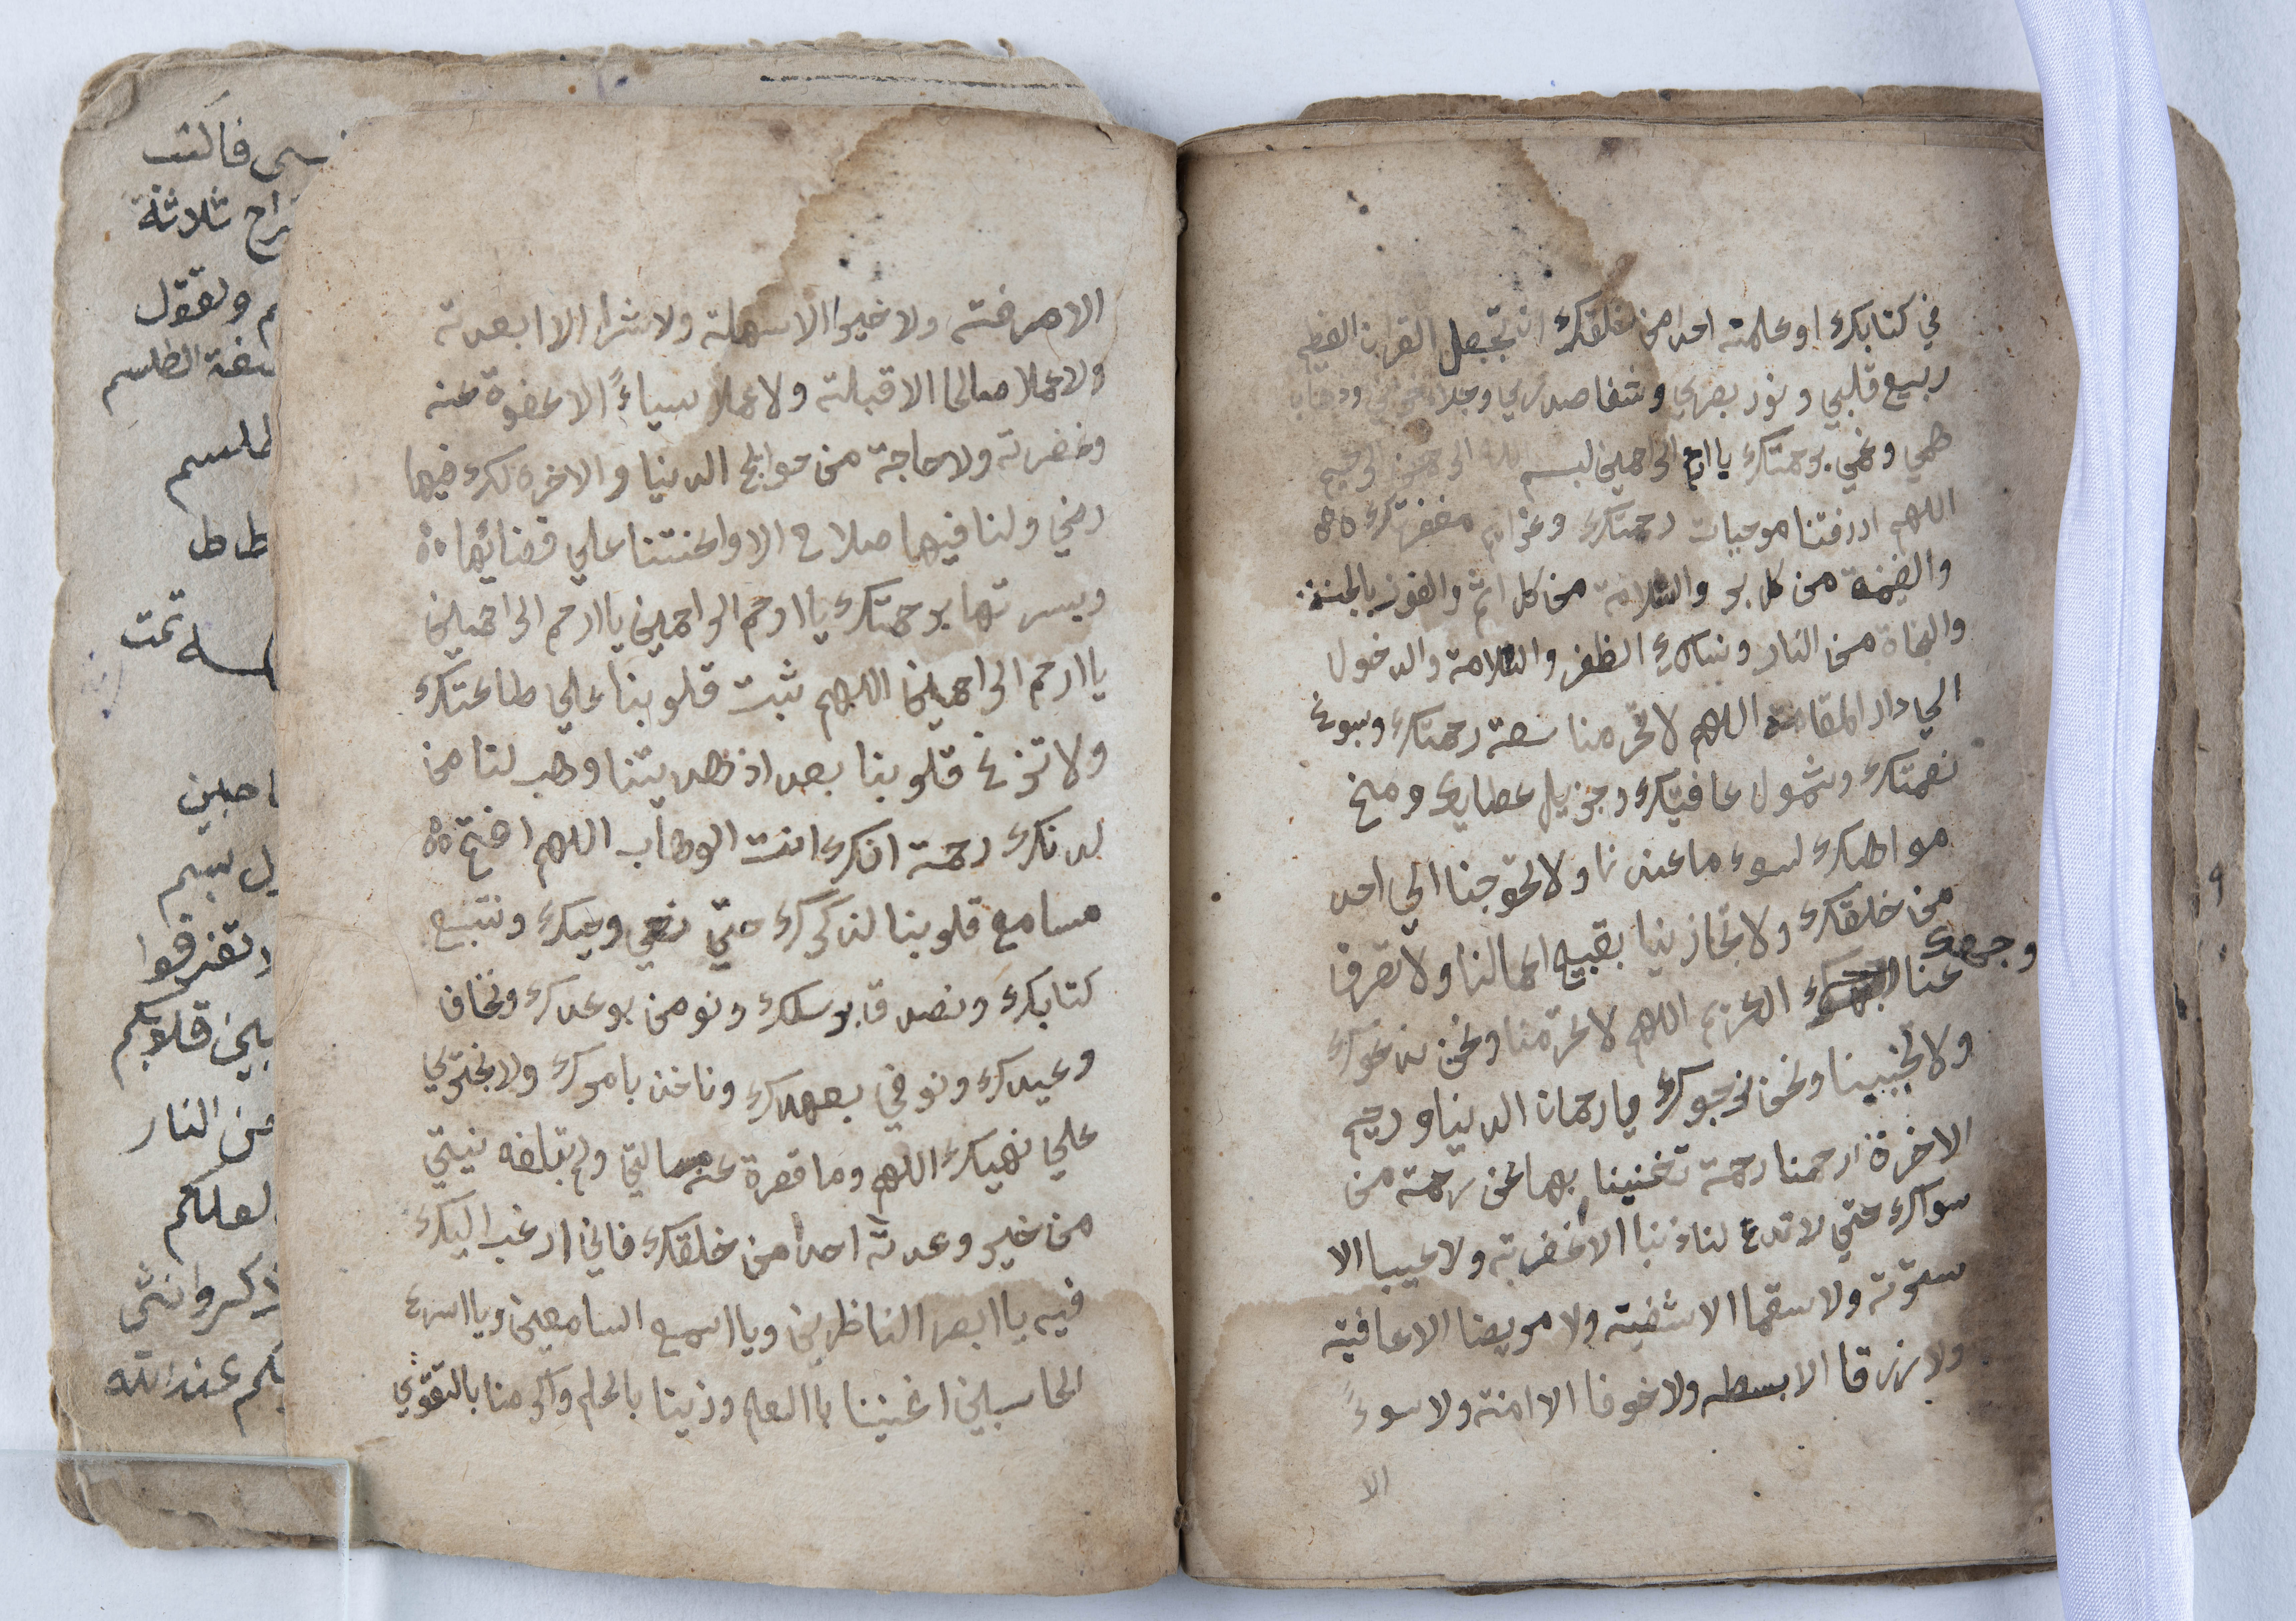 في كتابك او علمته احدا من خلقك ان تجعل القران العظيم
ربيع قلبي ونور بصري وشفا صدري وجلاء حزني وذهاب
همي وغمي برحمتك يا ارحم الراحمين بسم الله الرحمن الرحيم
اللهم ارزقنا موجبات رحمتك وعزايم مغفرتك
والغنيمة من كل بر والسلامة من كل اثم والفوز بالجنة
والنجاة من النار ونسالك الظفر والسلامة والدخول
الي دار المقامة اللهم لا تحرمنا سعة رحمتك وسبوغ
نعمتك وشمول عافيتك وجزيل عطايك ومنح
مواهبك لسوء ما عندنا ولا تحوجنا الي احد
من خلقك ولا تجازينا بقبيه اعمالنا ولا تصرف
عنا وجهك الكريم اللهم لا تحرمنا ونحن ندعوك
ولا تخيبنا ونحن نرجوك يا رحمان الدينا ورحيم
الاخرة ارحمنا رحمة تغنينا بها عن رحمة من
سواك حتي لا تدع لنا ذنبا الا غفرته ولا عيبا الا
سترته ولا سقما الا شفيته ولا مريضا الا عافيته
ولا رزقا الا بسطه ولا خوفا الا امنته ولا سوءً
الا
الا صرفته ولا خيرا الا سهلته ولا شرا الا ابعدته
ولا عملا صالحا الا قبلته ولا عملا سياءً الا عفوة عنه
وغفرته ولا حاجة من حوايج الدنيا والاخرة لك فيها
رضي ولنا فيها صلاح الا واعنتنا علي قضائها
ويسرتها برحمتك يا ارحم الراحمين يا ارحم الراحمين
يا ارحم الراحمين اللهم ثبت قلوبنا علي طاعتك
ولا تزغ قلوبنا بعد اذ هديتنا وهب لنا من
لدنك رحمة انك انت الوهاب اللهم افتح
مسامع قلوبنا لذكرك حتي نعي وحيك ونتبع
كتابك ونصدق برسلك ونومن بوعدك ونخاف
وعيدك ونوفي بعهدك وناخذ بامرك ولا نجتري
علي نهيك اللهم وما قصرة عنه مسالتي ولم تبلغه نيتي
من خير وعدته احدا من خلقك فاني ارغب اليك
فيه يا ابصر الناظرين ويا اسمع السامعين ويا اسرع
الحاسبين اغنينا باالعلم وزينا بالحلم واكرمنا بالتقوي
فاكتب
ثلاثة
وتقول
الطلسم
طلسم
تمت
بسم
من النار
لعلكم
عند الله